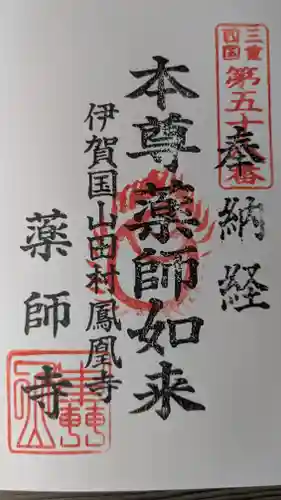 三重
四国
第五十番
奉納経
本尊薬師如来
伊賀国山田村鳳凰寺
薬師寺